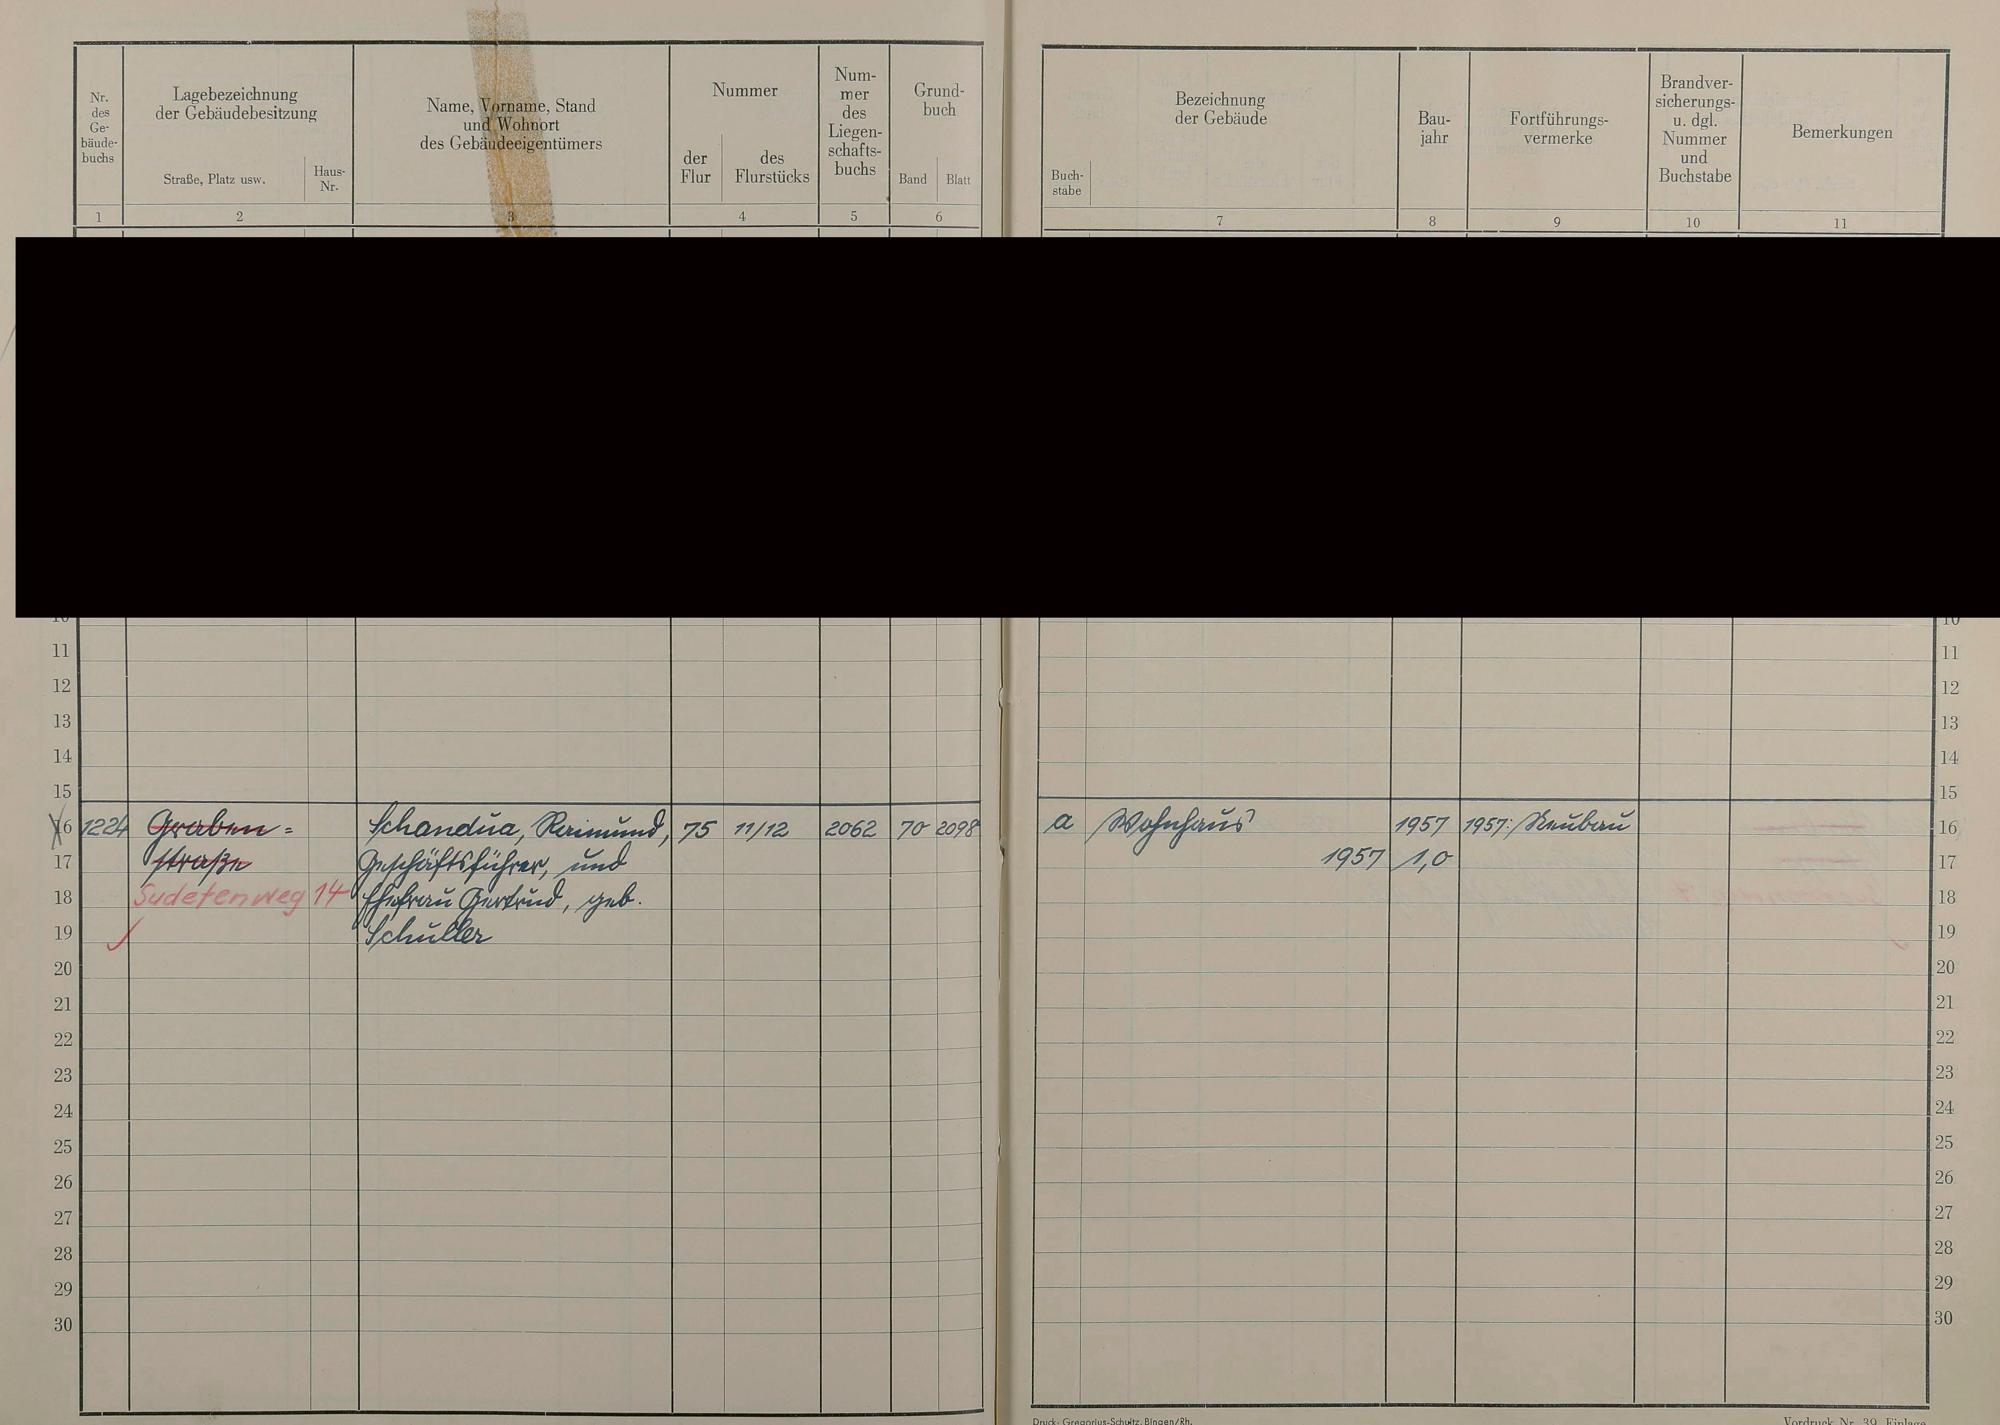 Nr.
des
Ge-
bäude-
buchs
Lagebezeichnung
der Gebäudebesitzung
Straße, Platz usw.
Haus-
Nr.
Name, Vorname, Stand
und Wohnort
des Gebäudeeigentümers
Nummer
der
Flur
des
Flurstücks
Num-
mer
des
Liegen-
schafts-
buchs
Grund-
buch
Band
Blatt
Buch-
stabe
Bezeichnung
der Gebäude
Bau-
jahr
Fortführungs-
vermerke
Brandver-
sicherungs-
u. dgl.
Nummer
und
Buchstabe
Bemerkungen
1 2 3 4 5 6 7 8 9 10 11
10 10
11 11
12 12
13 13
14 14
15 15
16 1224 Graben= Schandua, Raimund, 75 11/12 2062 70 2098 a Wohnhaus 1957 1957: Neubau 16
17 straße Geschäftsführer, und 1957 1,0 17
18 Sudetenweg 14 Ehefrau Gertrud, geb. 18
19 Schuller 19
20 20
21 21
22 22
23 23
24 24
25 25
26 26
27 27
28 28
29 29
30 30
Druck: Gregorius-Schultz, Bingen/Rh.
Vordruck Nr. 39 Einlage